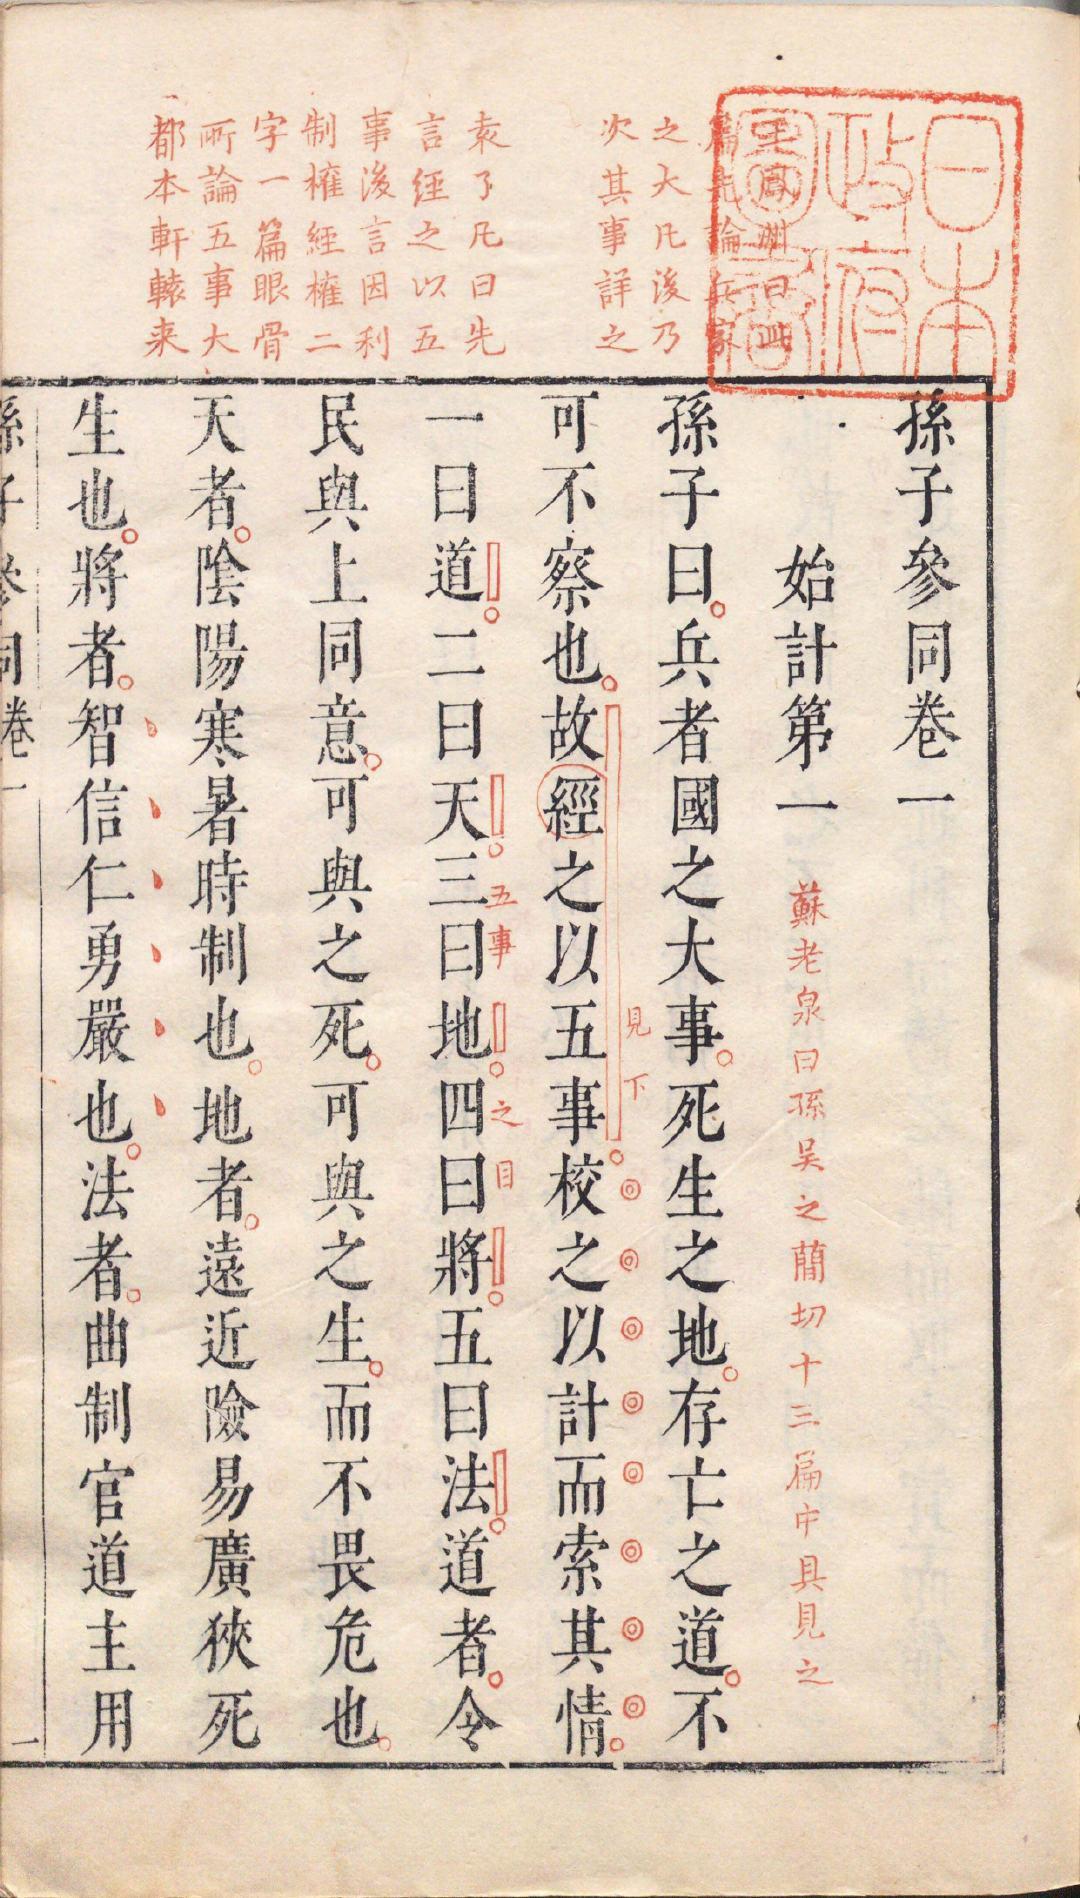 日本
政府
圖書
王鳳洲曰此
篇先論兵家
之大凡後乃
次其事詳之
袁了凡曰先
言經之以五
事後言因利
制權經權二
字一篇眼骨
所論五事大
都本軒轅来
孫子參同卷一
始計第一
蘇老泉曰孫吳之蕳切十三扁中具見之
孫子曰兵者國之大事死生之地存亡之道不
見下
可不察也故經之以五事校之以計而索其情
五事之目
一曰道二曰天三曰地四曰將五曰法道者令
民與上同意可與之死可與之生而不畏危也
天者陰陽寒暑時制也地者遠近險易廣狹死
生也將者智信仁勇嚴也法者曲制官道主用
孫子參同卷一
一